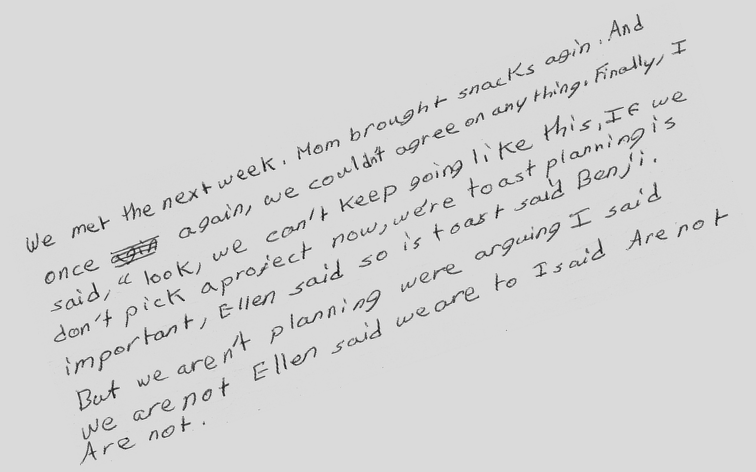 We met the next week. Mom brought snacks agin. And
once agin again, we couldn't agree on any thing. Finally, I
said, "look, we can't keep going like this, If we
don't pick a project now, we're toast planning is
important, Ellen said so is toast said Benji.
But we aren't planning were arguing I said
we are not Ellen said we are to I said Are not
Are not.